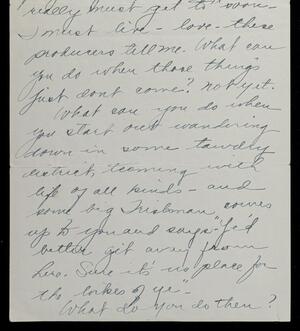 really must get to
I must live - love - these
producers tell me. What can
you do when those things
just dont come? not yet.
What can you do when
you start out wandering
down in some tawdry
district, teeming with
life of all kinds - and
some big Irishman comes
up to you and says "Ye'd
better git away from
here. Sure it's no place for
the loikes of ye" -
What do you do then?